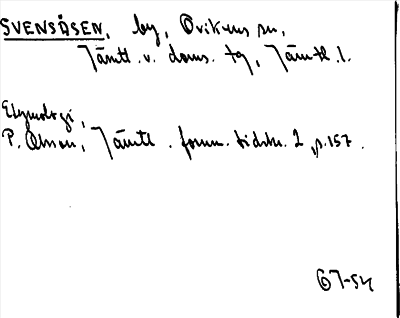 SVENSÅSEN, by, Ovikens sn,
Jämtl. v. doms. tg, Jämtl. l.
Etymologi,
P. Olsson, Jämtl. fornm. tidskr. 2, p. 157.
67-54